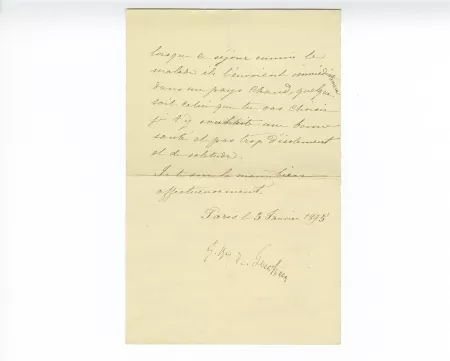 lorsque ce séjour ennuie le
malade ils l'envoient immédiatement
dans un pays chaud, quelque
soit celui que tu vas choisir
je t'y souhaite une bonne
santé et pas trop d'isolement
et de solitude.
Je te serre la main bien
affectueusement.
Paris le 3 Janvier 189